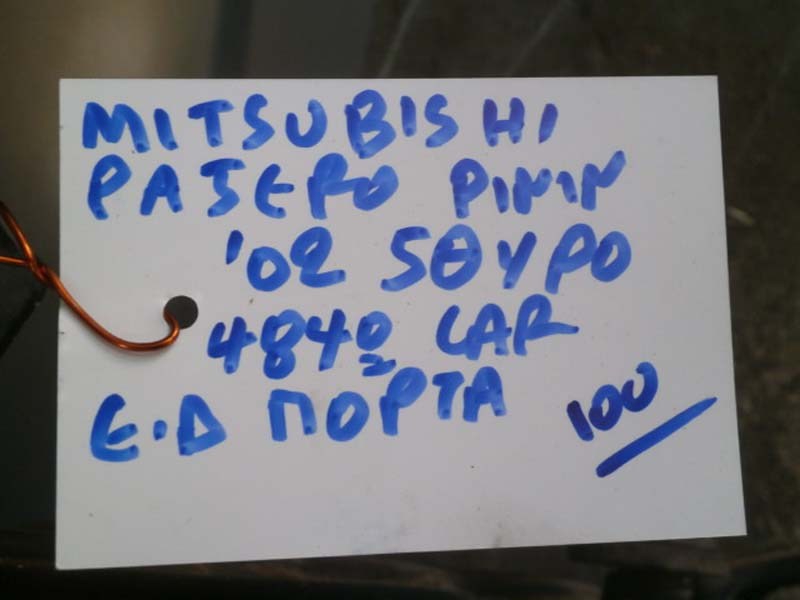 MITSUBISHI
PAJERO PININ
'02 5ΘΥΡΟ
4840 CAR
Ε.Δ ΠΟΡΤΑ
100